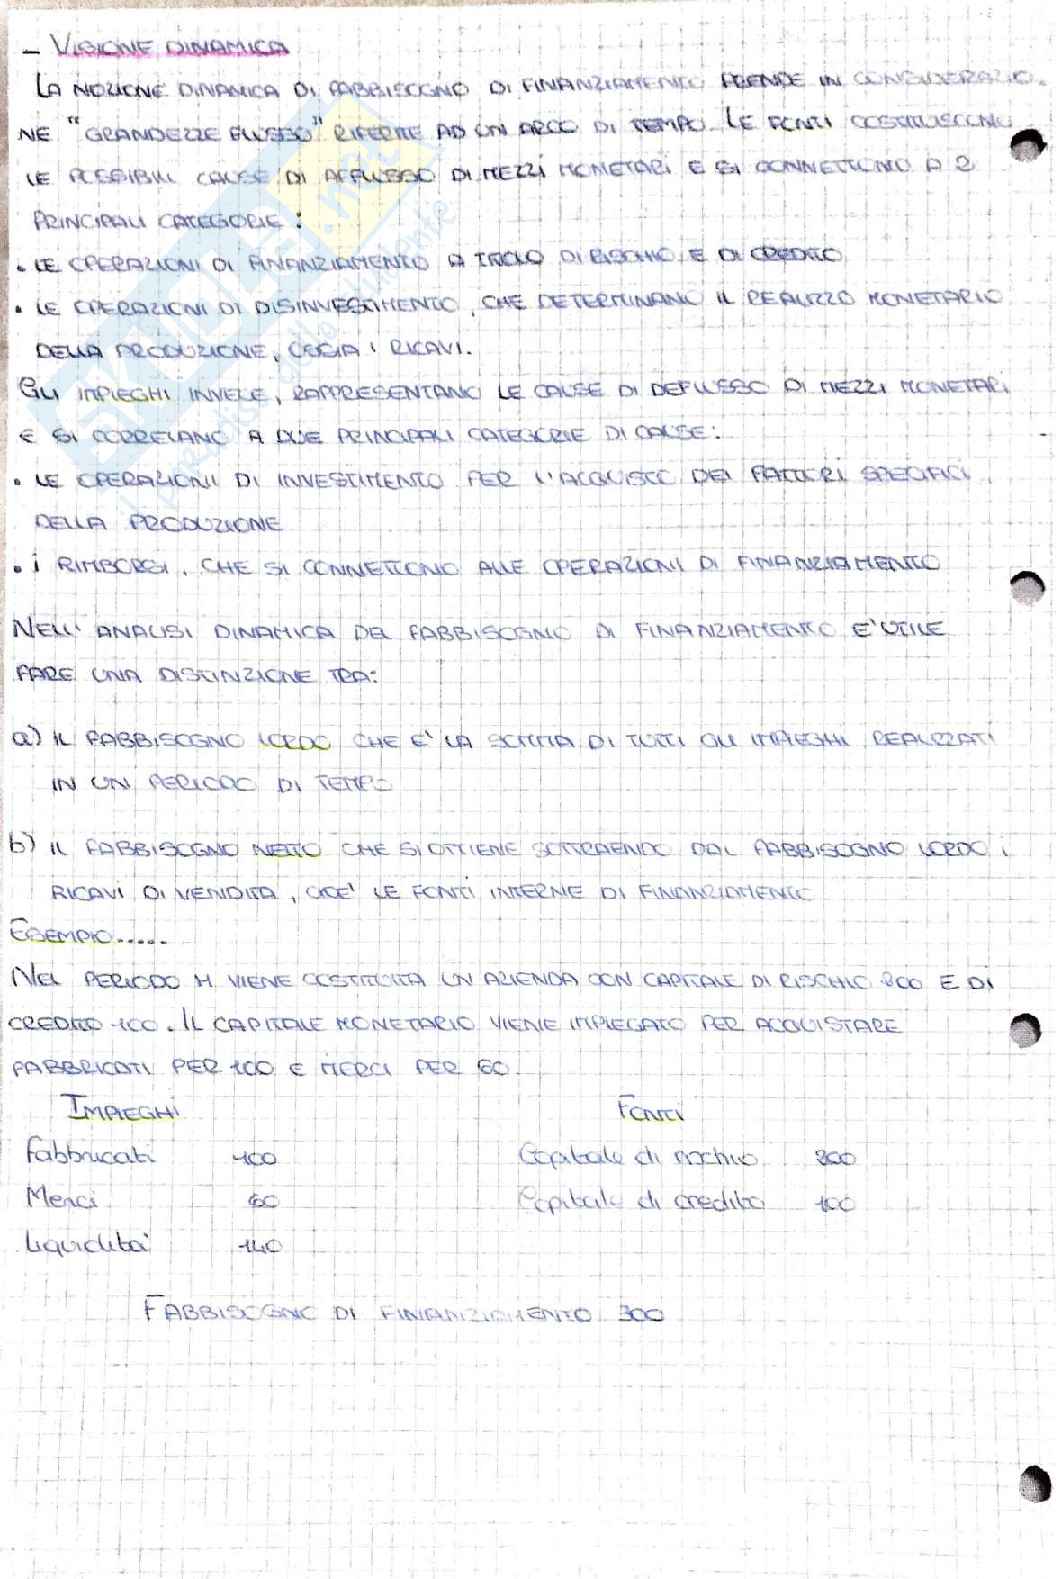 – VISIONE DINAMICA
LA NOZIONE DINAMICA DI FABBISOGNO DI FINANZIAMENTO PRENDE IN CONSIDERAZIO-
NE "GRANDEZZE FLUSSO" RIFERITE AD UN ARCO DI TEMPO. LE FONTI COSTITUISCONO
LE POSSIBILI CAUSE DI AFFLUSSO DI MEZZI MONETARI E SI CONNETTONO A 2
PRINCIPALI CATEGORIE:
• LE OPERAZIONI DI FINANZIAMENTO A TITOLO DI RISCHIO E DI CREDITO
• LE OPERAZIONI DI DISINVESTIMENTO, CHE DETERMINANO IL REALIZZO MONETARIO
DELLA PRODUZIONE, OSSIA I RICAVI.
GLI IMPIEGHI INVECE, RAPPRESENTANO LE CAUSE DI DEFLUSSO DI MEZZI MONETARI
E SI CORRELANO A DUE PRINCIPALI CATEGORIE DI CAUSE:
• LE OPERAZIONI DI INVESTIMENTO PER L'ACQUISTO DEI FATTORI SPECIFICI
DELLA PRODUZIONE
• I RIMBORSI, CHE SI CONNETTONO ALLE OPERAZIONI DI FINANZIAMENTO
NELL'ANALISI DINAMICA DEL FABBISOGNO DI FINANZIAMENTO E' UTILE
FARE UNA DISTINZIONE TRA:
a) IL FABBISOGNO LORDO CHE E' LA SOMMA DI TUTTI GLI IMPIEGHI REALIZZATI
IN UN PERIODO DI TEMPO
b) IL FABBISOGNO NETTO CHE SI OTTIENE SOTTRAENDO DAL FABBISOGNO LORDO I
RICAVI DI VENDITA, CIOE' LE FONTI INTERNE DI FINANZIAMENTO
ESEMPIO.....
NEL PERIODO M VIENE COSTITUITA UN AZIENDA CON CAPITALE DI RISCHIO 200 E DI
CREDITO 100. IL CAPITALE MONETARIO VIENE IMPIEGATO PER ACQUISTARE
FABBRICATI PER 100 E MERCI PER 60.
IMPIEGHI FONTI
Fabbricati 100 Capitale di rischio 200
Merci 60 Capitale di credito 100
Liquidita' 140
FABBISOGNO DI FINANZIAMENTO 300
SKUOLA.net